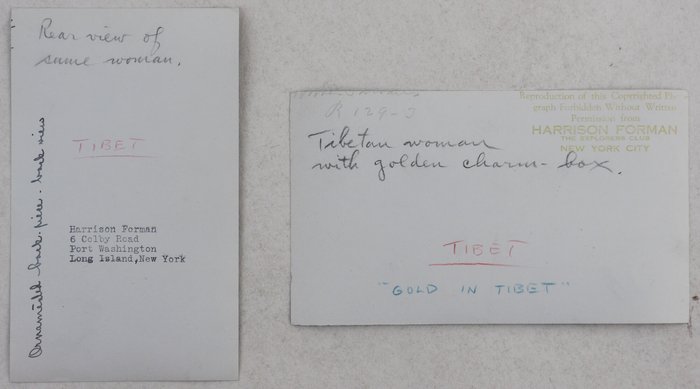 Rear view of
same woman.
TIBET
Harrison Forman
6 Colby Road
Port Washington
Long Island,New York
back-piece - back view
Reproduction of this Copyrighted Ph
graph Forbidden Without Written
Permission from
HARRISON FORMAN
THE EXPLORERS CLUB
NEW YORK CITY
R 129-3
Tibetan woman
with golden charm-box.
TIBET
"GOLD IN TIBET"